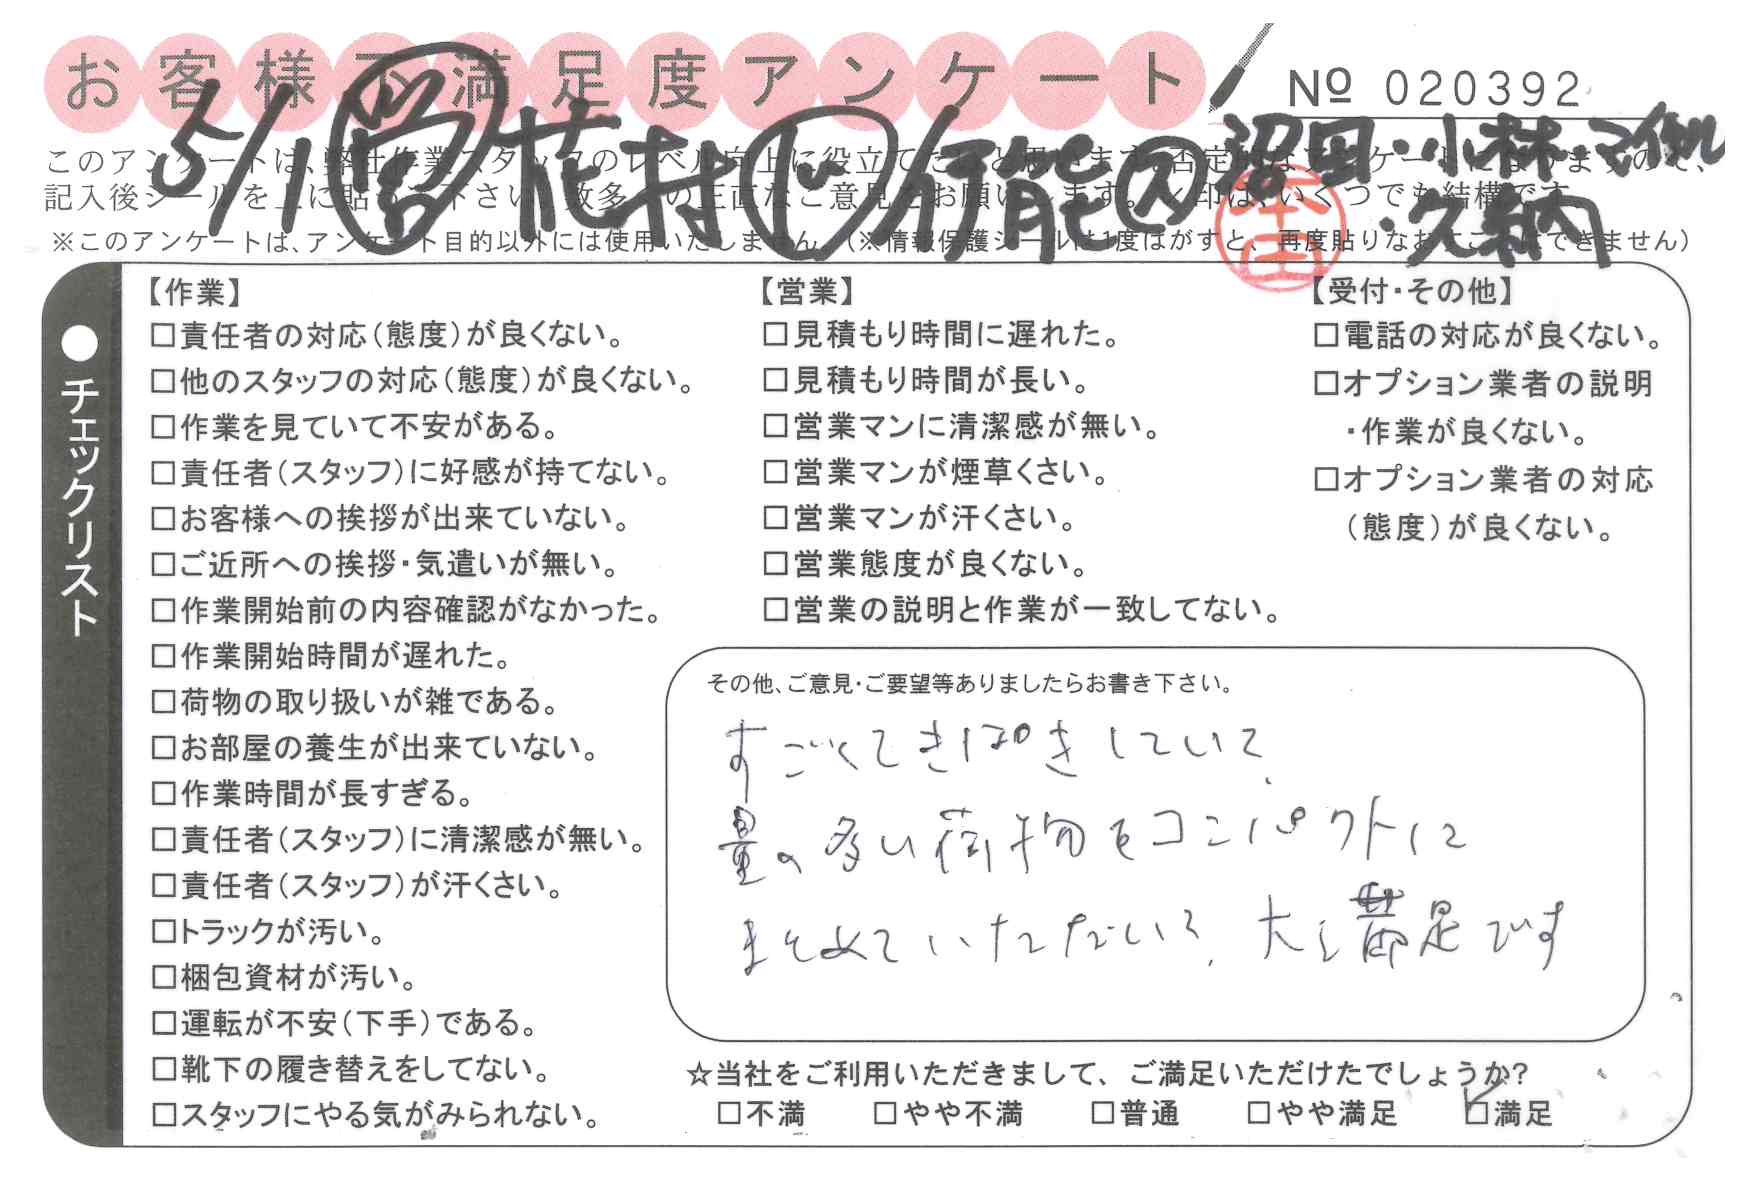 お客様不満足度アンケート
№ 020392
5/1 営 花村 行能 沼田・小林・マイケル
・久納
本田
このアンケートは、弊社作業スタッフのレベル向上に役立てたいと思います。否定的なアンケートになりますので、
記入後シールを上に貼って下さい。数多くの正直なご意見をお願いします。✓印は、いくつでも結構です。
※このアンケートは、アンケート目的以外には使用いたしません。(※情報保護シールは1度はがすと、再度貼りなおすことはできません)
●チェックリスト
【作業】
□責任者の対応(態度)が良くない。
□他のスタッフの対応(態度)が良くない。
□作業を見ていて不安がある。
□責任者(スタッフ)に好感が持てない。
□お客様への挨拶が出来ていない。
□ご近所への挨拶・気遣いが無い。
□作業開始前の内容確認がなかった。
□作業開始時間が遅れた。
□荷物の取り扱いが雑である。
□お部屋の養生が出来ていない。
□作業時間が長すぎる。
□責任者(スタッフ)に清潔感が無い。
□責任者(スタッフ)が汗くさい。
□トラックが汚い。
□梱包資材が汚い。
□運転が不安(下手)である。
□靴下の履き替えをしてない。
□スタッフにやる気がみられない。
【営業】
□見積もり時間に遅れた。
□見積もり時間が長い。
□営業マンに清潔感が無い。
□営業マンが煙草くさい。
□営業マンが汗くさい。
□営業態度が良くない。
□営業の説明と作業が一致してない。
【受付・その他】
□電話の対応が良くない。
□オプション業者の説明
・作業が良くない。
□オプション業者の対応
(態度)が良くない。
その他、ご意見・ご要望等ありましたらお書き下さい。
すごくてきぱきしていて、
量の多い荷物をコンパクトに
まとめていただいて、大変満足です
☆当社をご利用いただきまして、ご満足いただけたでしょうか?
□不満 □やや不満 □普通 □やや満足 ☑満足